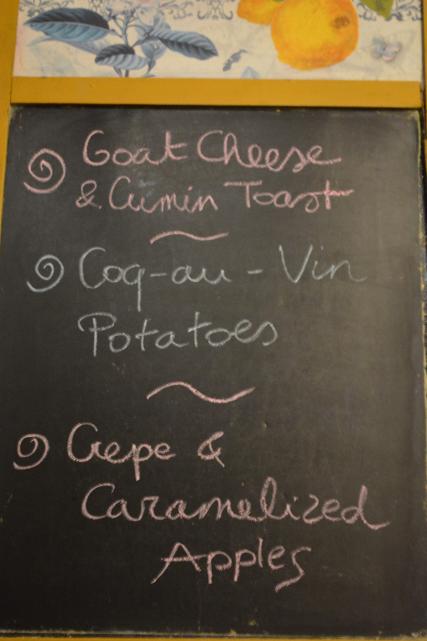 Goat Cheese
& Cumin Toast
Coq-au-Vin
Potatoes
Crepe &
Caramelized
Apples